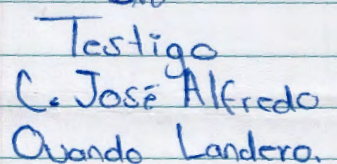 Testigo
C. José Alfredo
Ovando Landero.